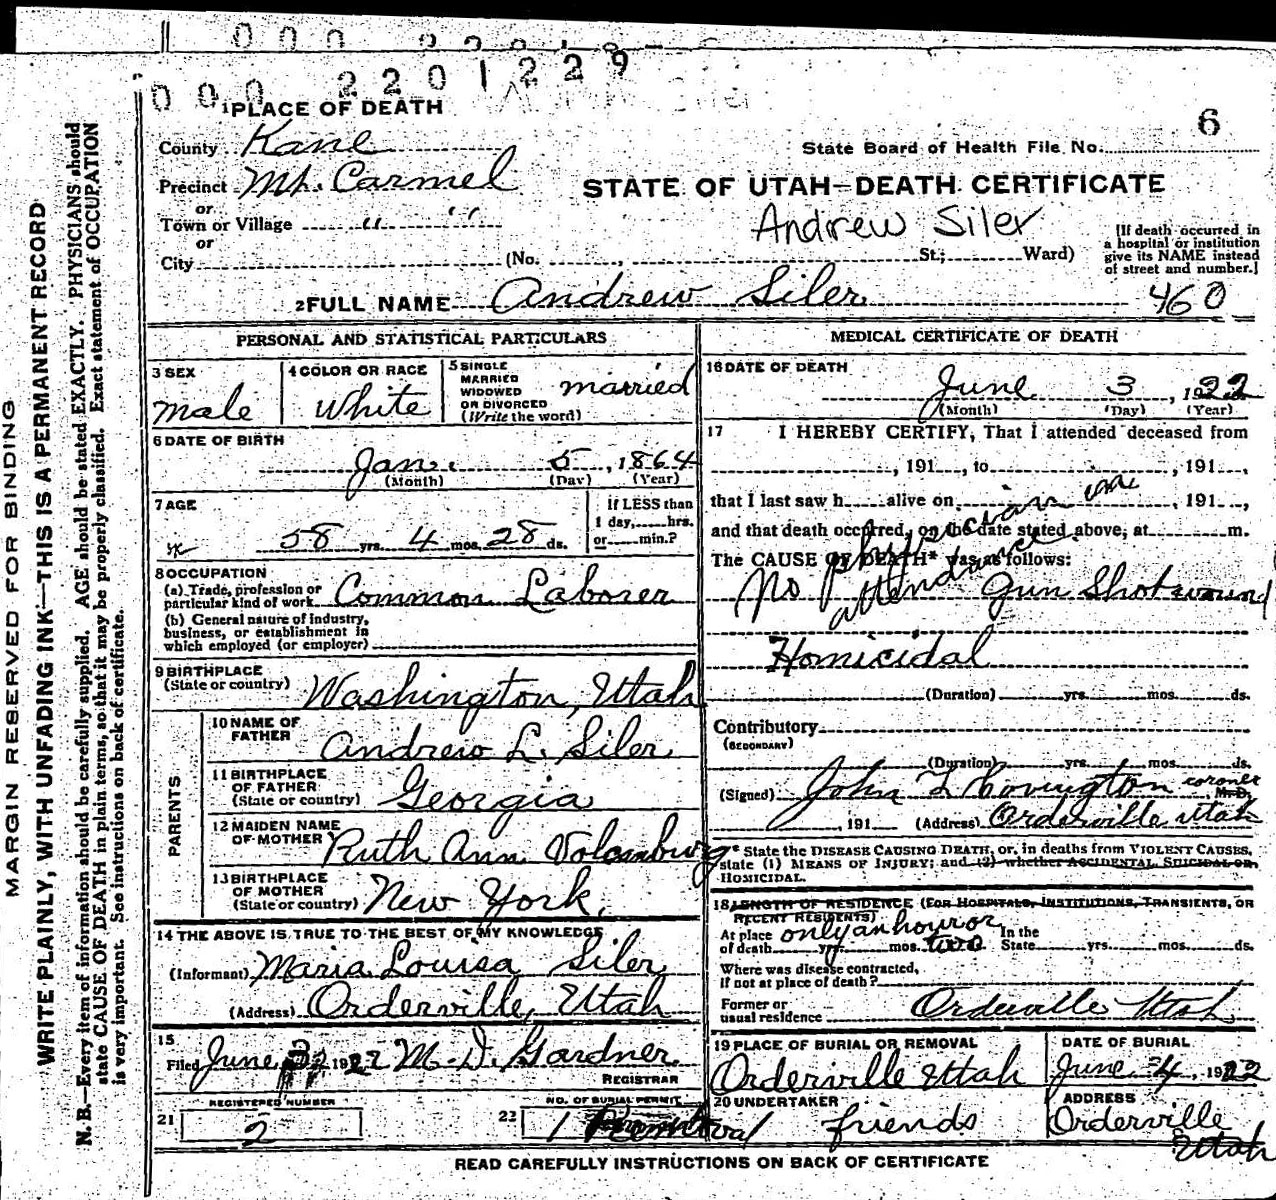 000 2201229
1 PLACE OF DEATH
6
County Kane
State Board of Health File No.
Precinct Mt. Carmel
STATE OF UTAH—DEATH CERTIFICATE
or
Town or Village " "
Andrew Siler
or
City (No. , St.; Ward)
[If death occurred in a hospital or institution give its NAME instead of street and number.]
2 FULL NAME Andrew Siler
460
PERSONAL AND STATISTICAL PARTICULARS
3 SEX
male
4 COLOR OR RACE
White
5 SINGLE
MARRIED
WIDOWED
OR DIVORCED
(Write the word)
married
6 DATE OF BIRTH
Jan. 5, 1864
(Month) (Day) (Year)
7 AGE
58 yrs. 4 mos. 28 ds.
If LESS than
1 day, hrs.
or min.?
8 OCCUPATION
(a) Trade, profession or
particular kind of work Common Laborer
(b) General nature of industry,
business, or establishment in
which employed (or employer)
9 BIRTHPLACE
(State or country) Washington, Utah
PARENTS
10 NAME OF
FATHER Andrew L. Siler
11 BIRTHPLACE
OF FATHER
(State or country) Georgia
12 MAIDEN NAME
OF MOTHER Ruth Ann
13 BIRTHPLACE
OF MOTHER
(State or country) New York.
14 THE ABOVE IS TRUE TO THE BEST OF MY KNOWLEDGE
(Informant) Maria Louisa Siler
(Address) Orderville, Utah
15
Filed June 1922 M. D. Gardner
REGISTRAR
REGISTERED NUMBER
21 2
NO. OF BURIAL PERMIT
22 1 Removal
MEDICAL CERTIFICATE OF DEATH
16 DATE OF DEATH
June 3, 1922
(Month) (Day) (Year)
17 I HEREBY CERTIFY, That I attended deceased from
, 191 , to , 191 ,
that I last saw h alive on , 191 ,
and that death occurred, on the date stated above, at m.
The CAUSE OF DEATH* was as follows:
No physician in attendance Gun Shot wound
Homicidal
(Duration) yrs. mos. ds.
Contributory
(SECONDARY)
(Duration) yrs. mos. ds.
(Signed) John L Covington coroner M. D.
, 191 (Address) Orderville Utah
* State the DISEASE CAUSING DEATH, or, in deaths from VIOLENT CAUSES,
state (1) MEANS OF INJURY; and (2) whether ACCIDENTAL, SUICIDAL OR
HOMICIDAL.
18 LENGTH OF RESIDENCE (FOR HOSPITALS, INSTITUTIONS, TRANSIENTS, OR
RECENT RESIDENTS)
At place only an hour or In the
of death yrs. mos. two State yrs. mos. ds.
Where was disease contracted,
If not at place of death?
Former or
usual residence Orderville Utah
19 PLACE OF BURIAL OR REMOVAL
Orderville Utah
DATE OF BURIAL
June 4, 1922
20 UNDERTAKER
friends
ADDRESS
Orderville
Utah
READ CAREFULLY INSTRUCTIONS ON BACK OF CERTIFICATE
MARGIN RESERVED FOR BINDING
WRITE PLAINLY, WITH UNFADING INK—THIS IS A PERMANENT RECORD
N. B.—Every item of information should be carefully supplied. AGE should be stated EXACTLY. PHYSICIANS should
state CAUSE OF DEATH in plain terms, so that it may be properly classified. Exact statement of OCCUPATION
is very important. See instructions on back of certificate.